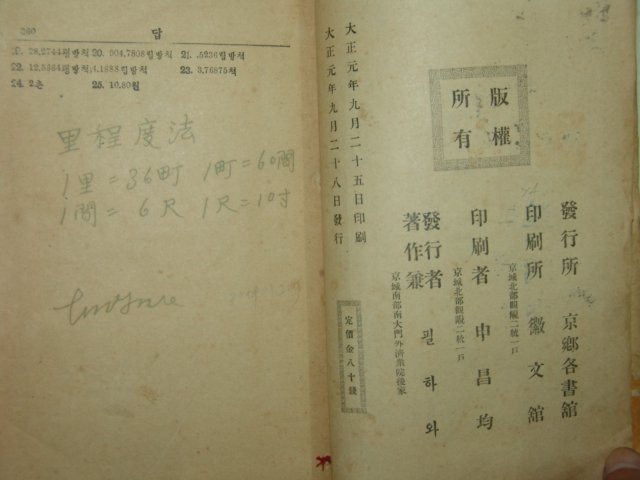 260 답
19. 28.2744평방척 20. 904.7808립방척 21. .5236립방척
22. 12.5664평방척, 4.1888립방척 23. 3.76875척
24. 2촌 25. 10.80원
里程度法
1里=36町 1町=60間
1間=6尺 1尺=10寸
版權
所有
大正元年九月二十五日印刷
大正元年九月二十八日發行
定價金八十錢
京城南部南大門外濟衆院後家
著作兼
發行者 필하와
京城北部觀峴二統一戶
印刷者 申昌均
京城北部觀峴二統一戶
印刷所 徽文舘
發行所 京鄕各書舘